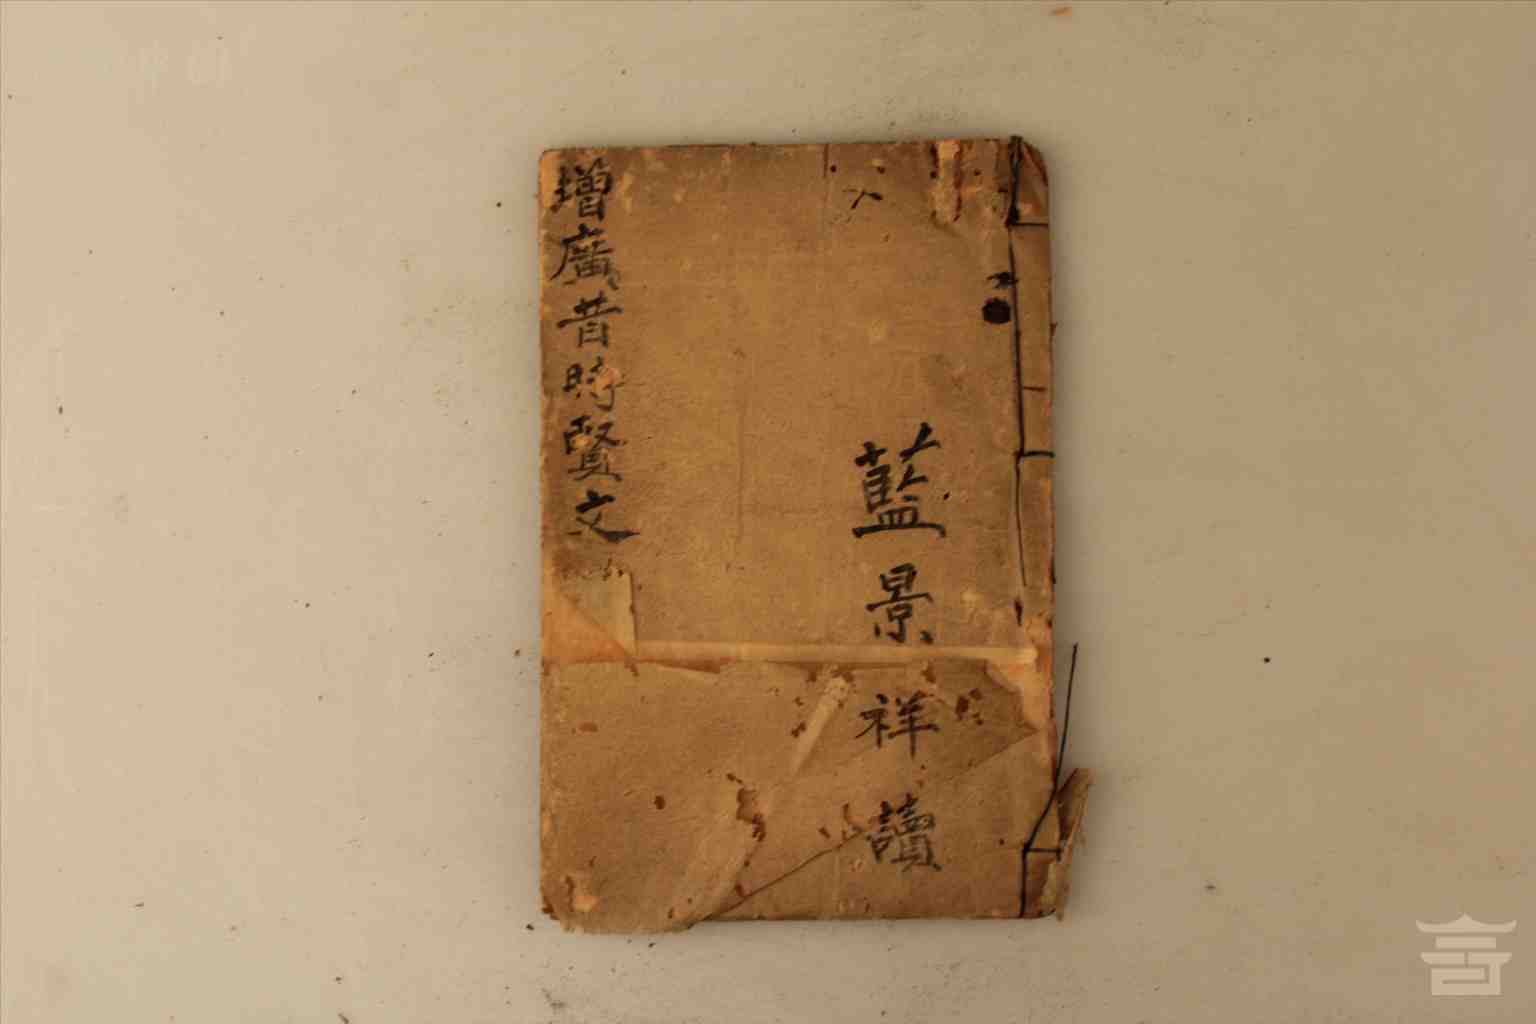 藍景祥讀
增廣昔時賢文